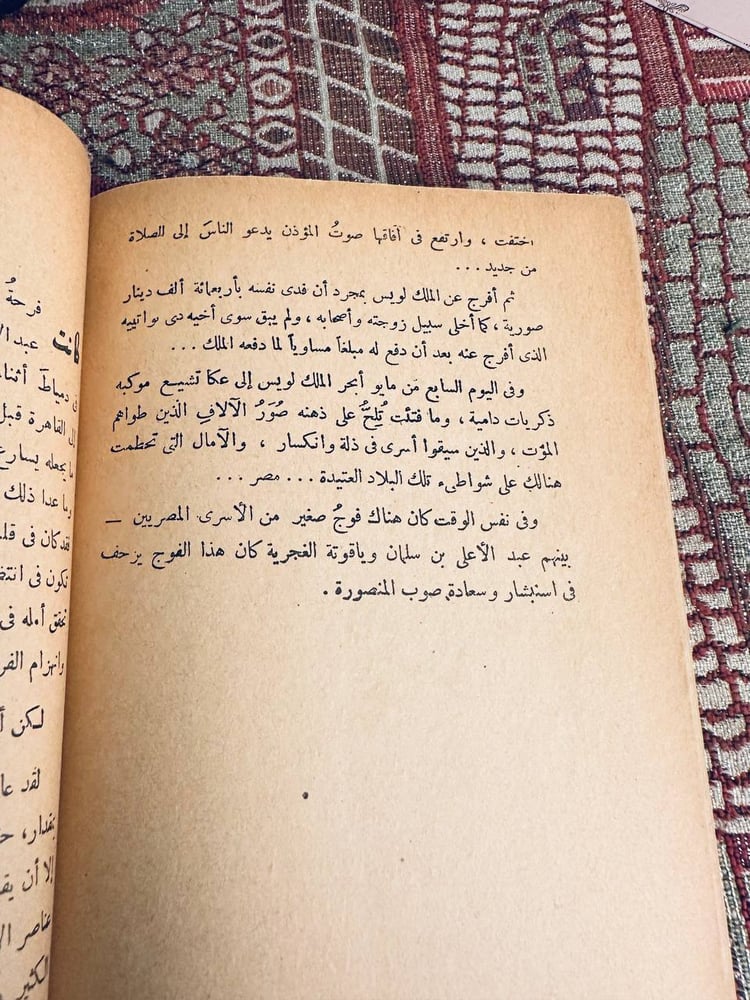 اختفت ، وارتفع فى آفاقها صوتُ المؤذن يدعو الناسَ إلى للصلاة
من جديد ...
ثم أفرج عن الملك لويس بمجرد أن فدى نفسه بأربعمائة ألف دينار
صورية ، كما أخلى سبيل زوجته وأصحابه ، ولم يبق سوى أخيه دى بواتييه
الذى أفرج عنه بعد أن دفع له مبلغاً مساوياً لما دفعه الملك ...
وفى اليوم السابع من مايو أبحر الملك لويس إلى عكا تشيع موكبه
ذكريات دامية ، وما فتئت تُلِحُّ على ذهنه صُوَرُ الآلاف الذين طواهم
المؤت ، والذين سيقوا أسرى فى ذلة وانكسار ، والآمال التى تحطمت
هنالك على شواطىء تلك البلاد العتيدة ... مصر ...
وفى نفس الوقت كان هناك فوجُ صغير من الأسرى المصريين —
بينهم عبد الأعلى بن سلمان وياقوتة الغجرية كان هذا الفوج يزحف
فى استبشار وسعادة صوب المنصورة .
فرحةُ
كانت
فى دمياط
إلى القاهرة قبل
ما يجعله يسارع
وما عدا ذلك
فقد كان فى
تكون فى
تحقق أمله فى
وانهزام
لكن
لقد
بمقدار،
إلا أن
عناصر
الكثير